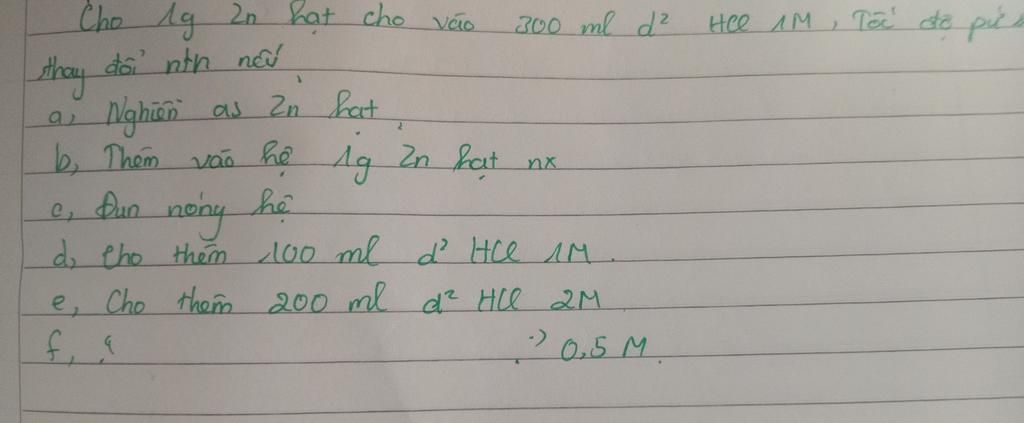 Cho 1g Zn hạt cho vào 300 ml d² HCl 1M, Tốc độ pứ
thay đổi ntn nếu
a, Nghiền as Zn hạt
b, Thêm vào hệ 1g Zn hạt nx
c, Đun nóng hệ
d, Cho thêm 100 ml d² HCl 1M.
e, Cho thêm 200 ml d² HCl 2M
f, 0,5 M.